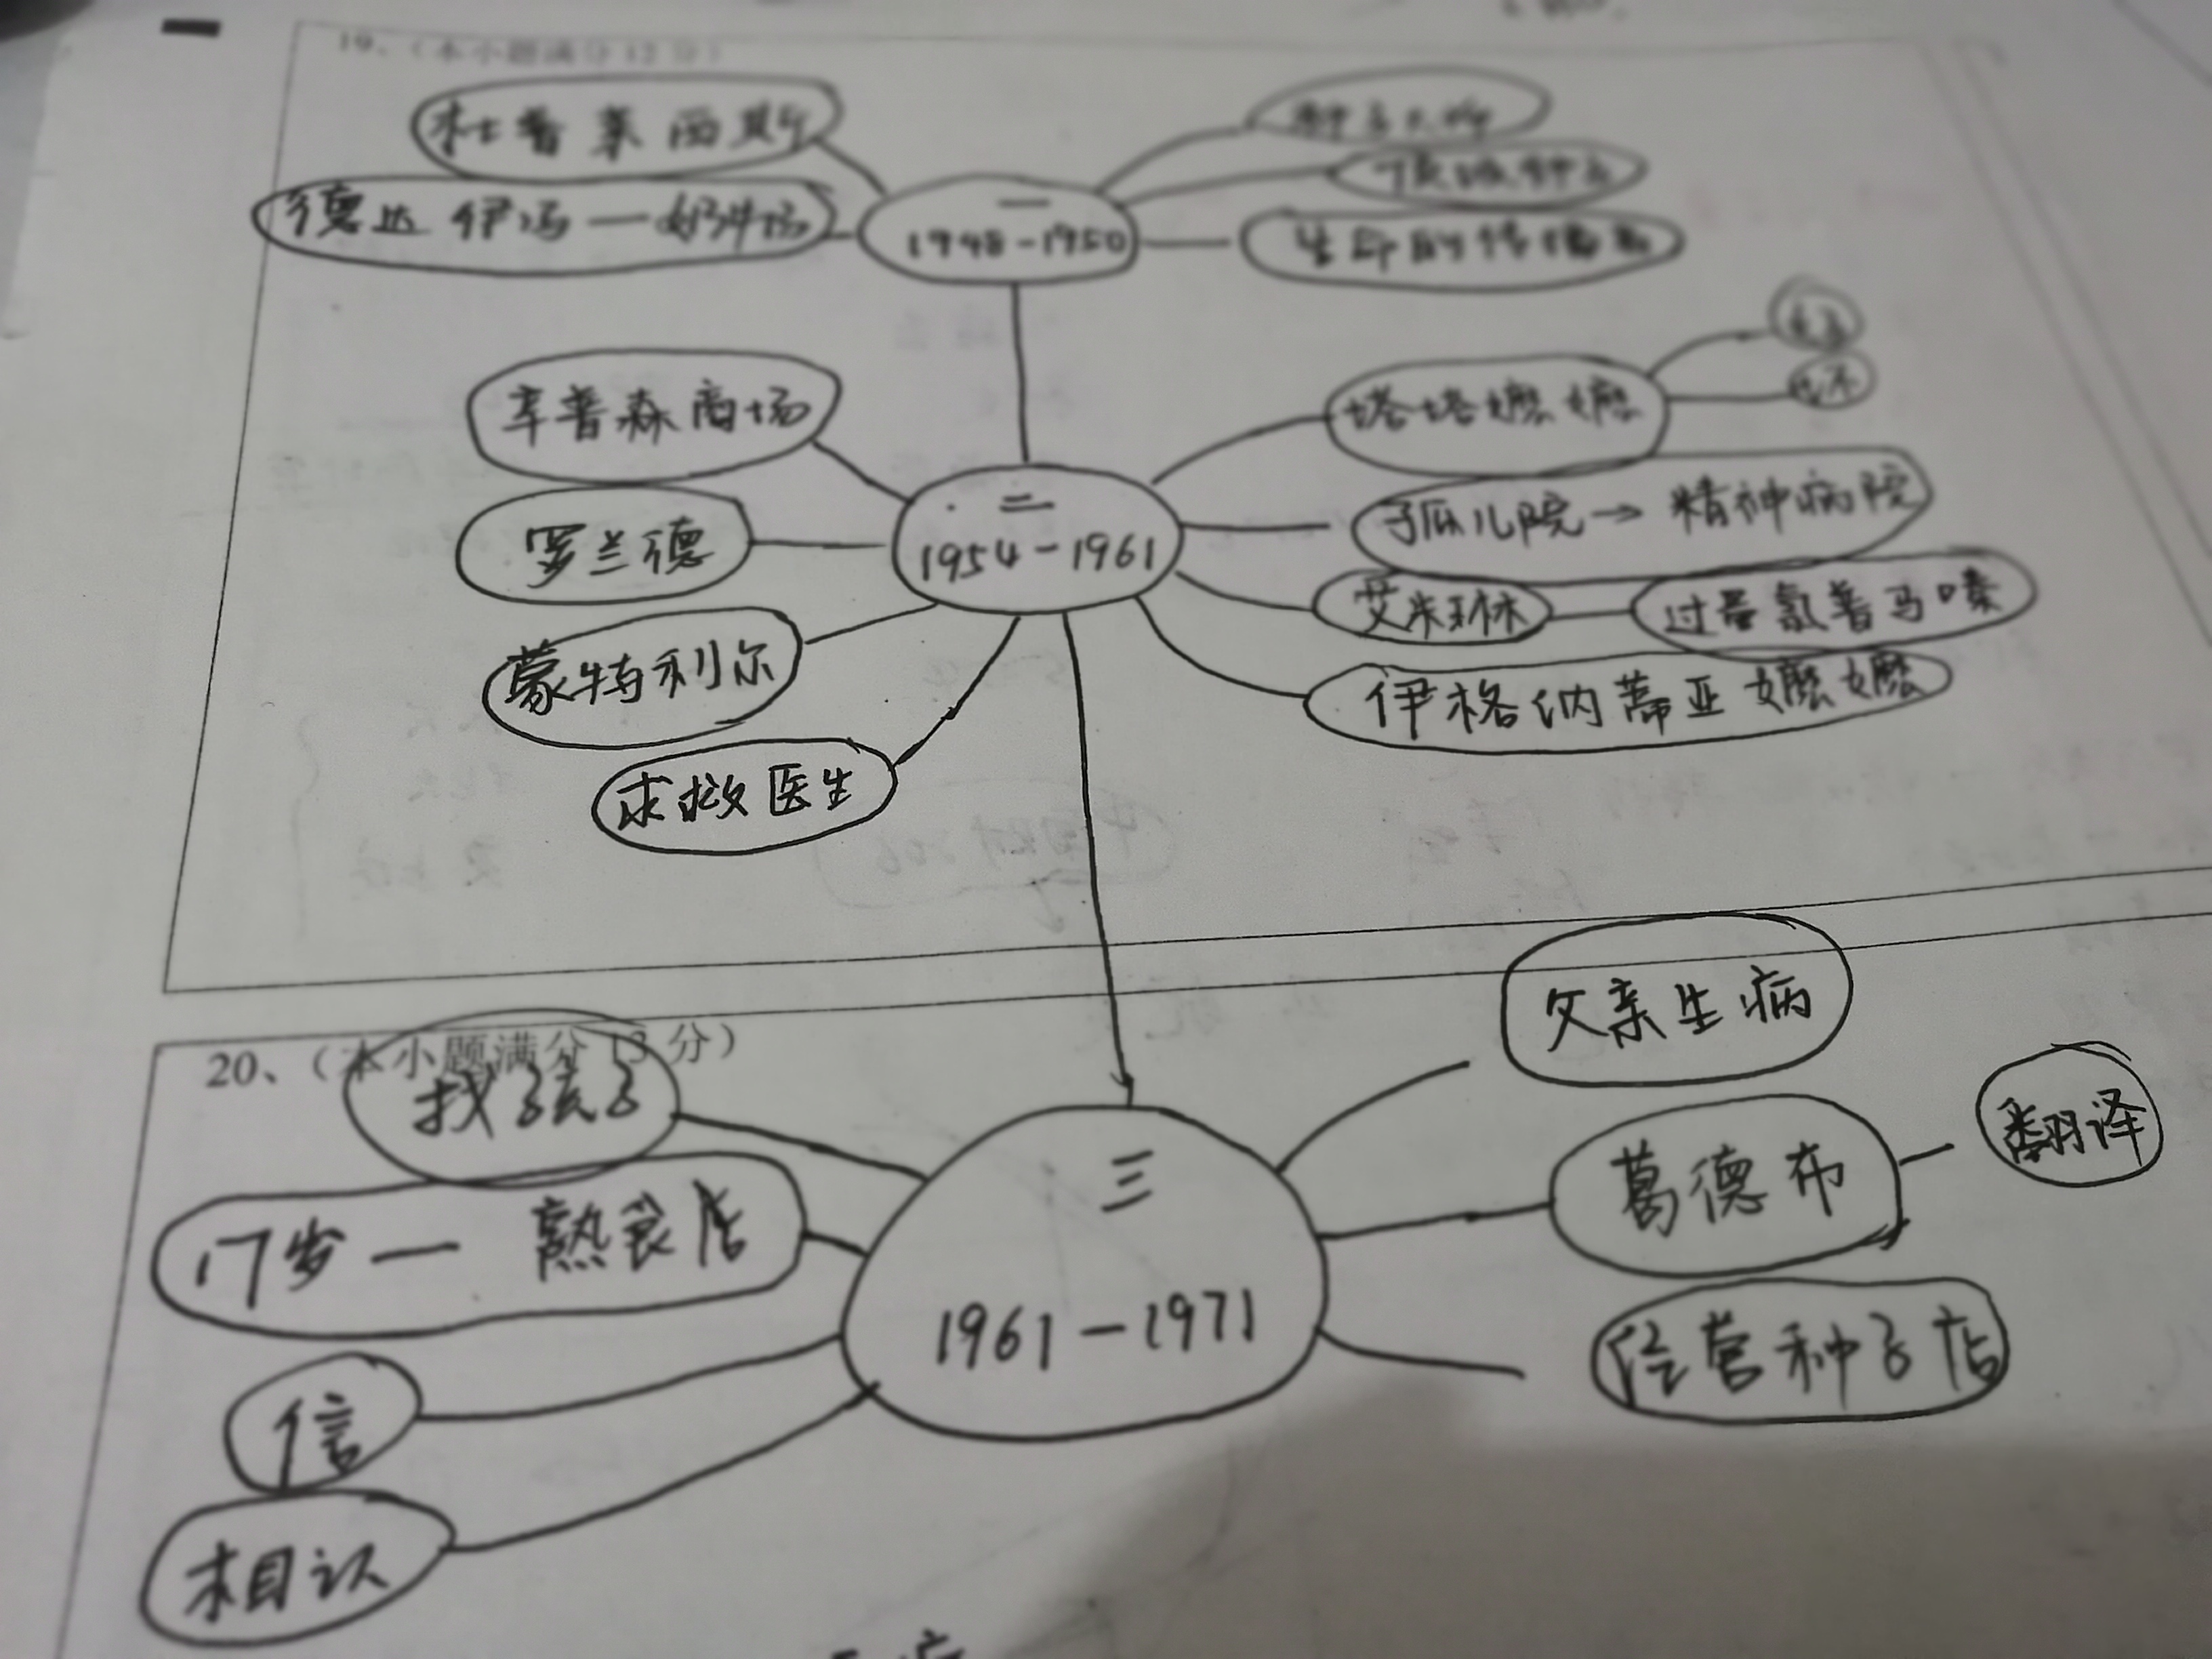 19、(本小题满分12分)
杜普莱西斯
德迈 伊冯—奶牛场
一
1948-1950
生命的传播者
辛普森商场
罗兰德
蒙特利尔
求救医生
二
1954-1961
塔塔嬷嬷
孤儿院→精神病院
艾米琳
过量氯普马嗪
伊格纳蒂亚嬷嬷
20、(本小题满分13分)
找孩子
17岁— 熟食店
信
相认
三
1961-1971
父亲生病
葛德布
翻译
经营种子店